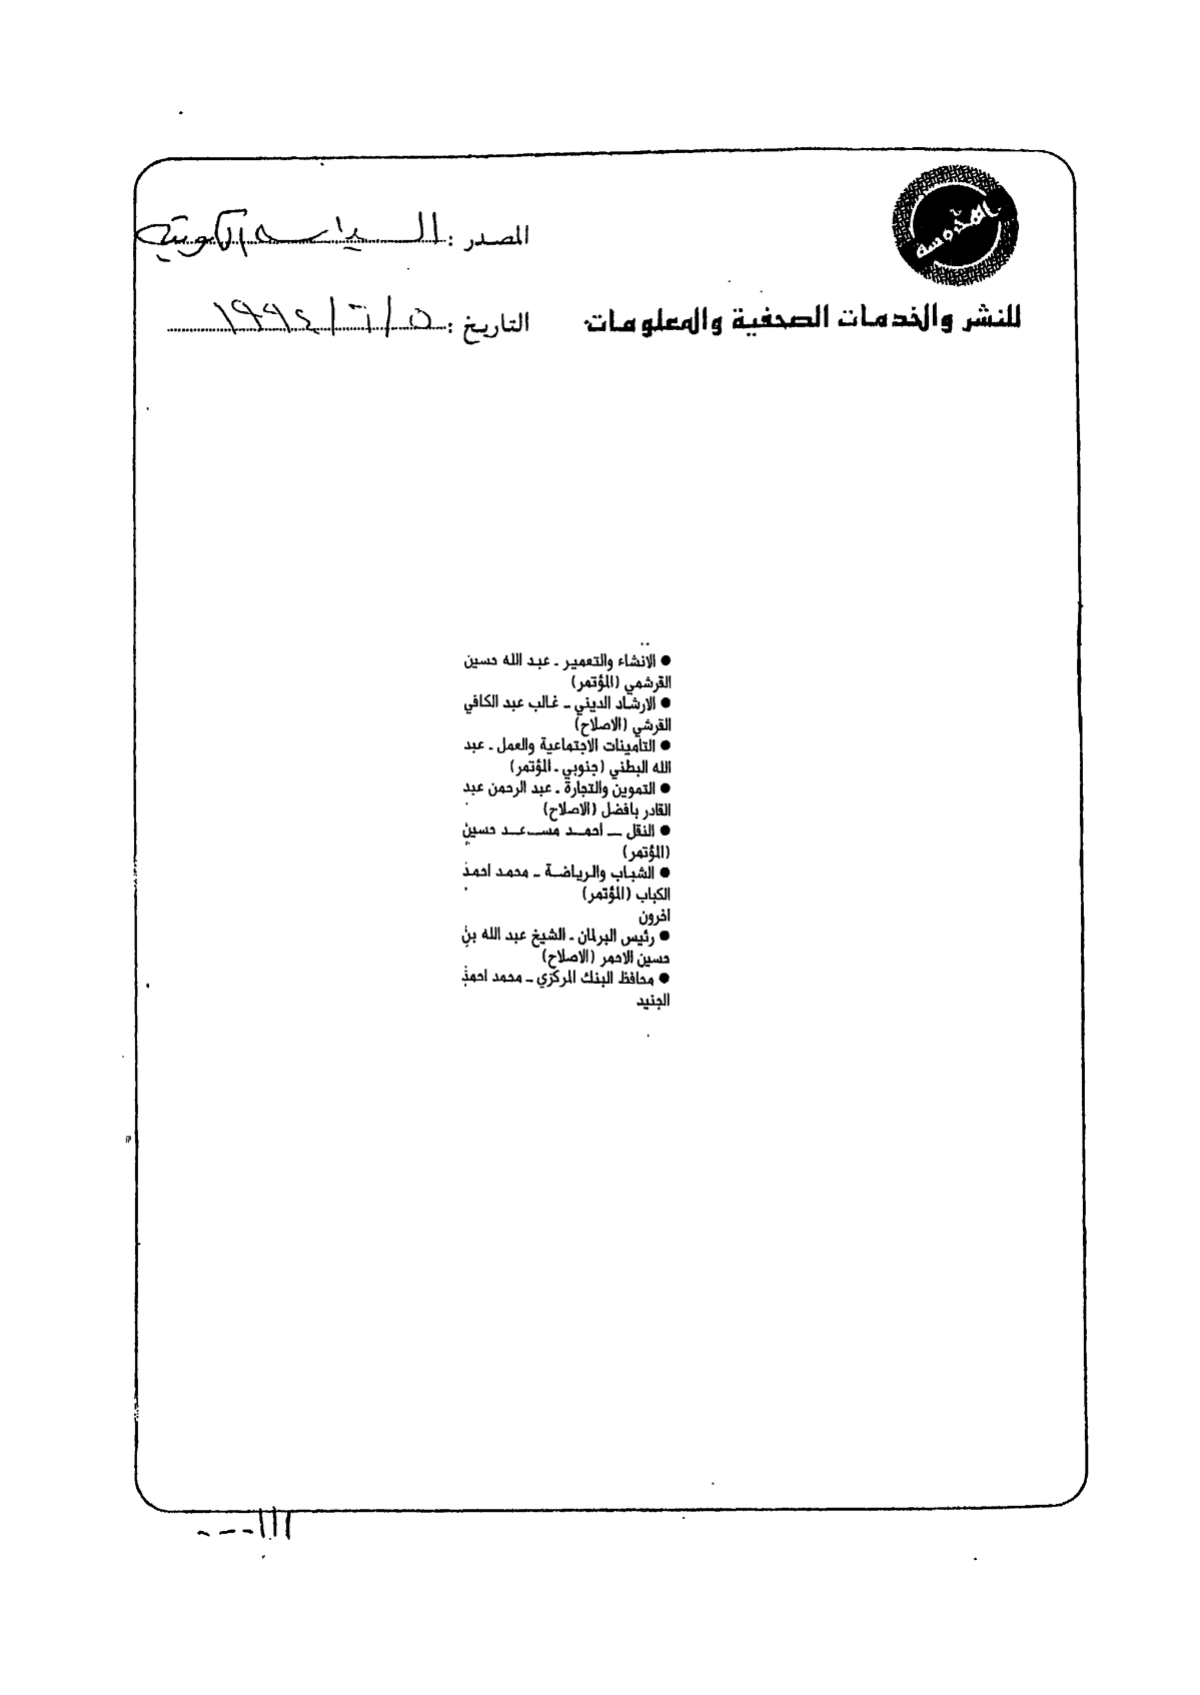 المصدر : السياسة الكويتية
للنشر والخدمات الصحفية والمعلومات
التاريخ : ٥/٦/١٩٩٤
● الانشاء والتعمير ـ عبد الله حسين
القرشمي (المؤتمر)
● الارشاد الديني ـ غالب عبد الكافي
القرشي (الاصلاح)
● التامينات الاجتماعية والعمل ـ عبد
الله البطني (جنوبي ـ المؤتمر)
● التموين والتجارة ـ عبد الرحمن عبد
القادر بافضل (الاصلاح)
● النقل ـ احمد مسعد حسين
(المؤتمر)
● الشباب والرياضة ـ محمد احمد
الكباب (المؤتمر)
اخرون
● رئيس البرلمان ـ الشيخ عبد الله بن
حسين الاحمر (الاصلاح)
● محافظ البنك المركزي ـ محمد احمد
الجنيد